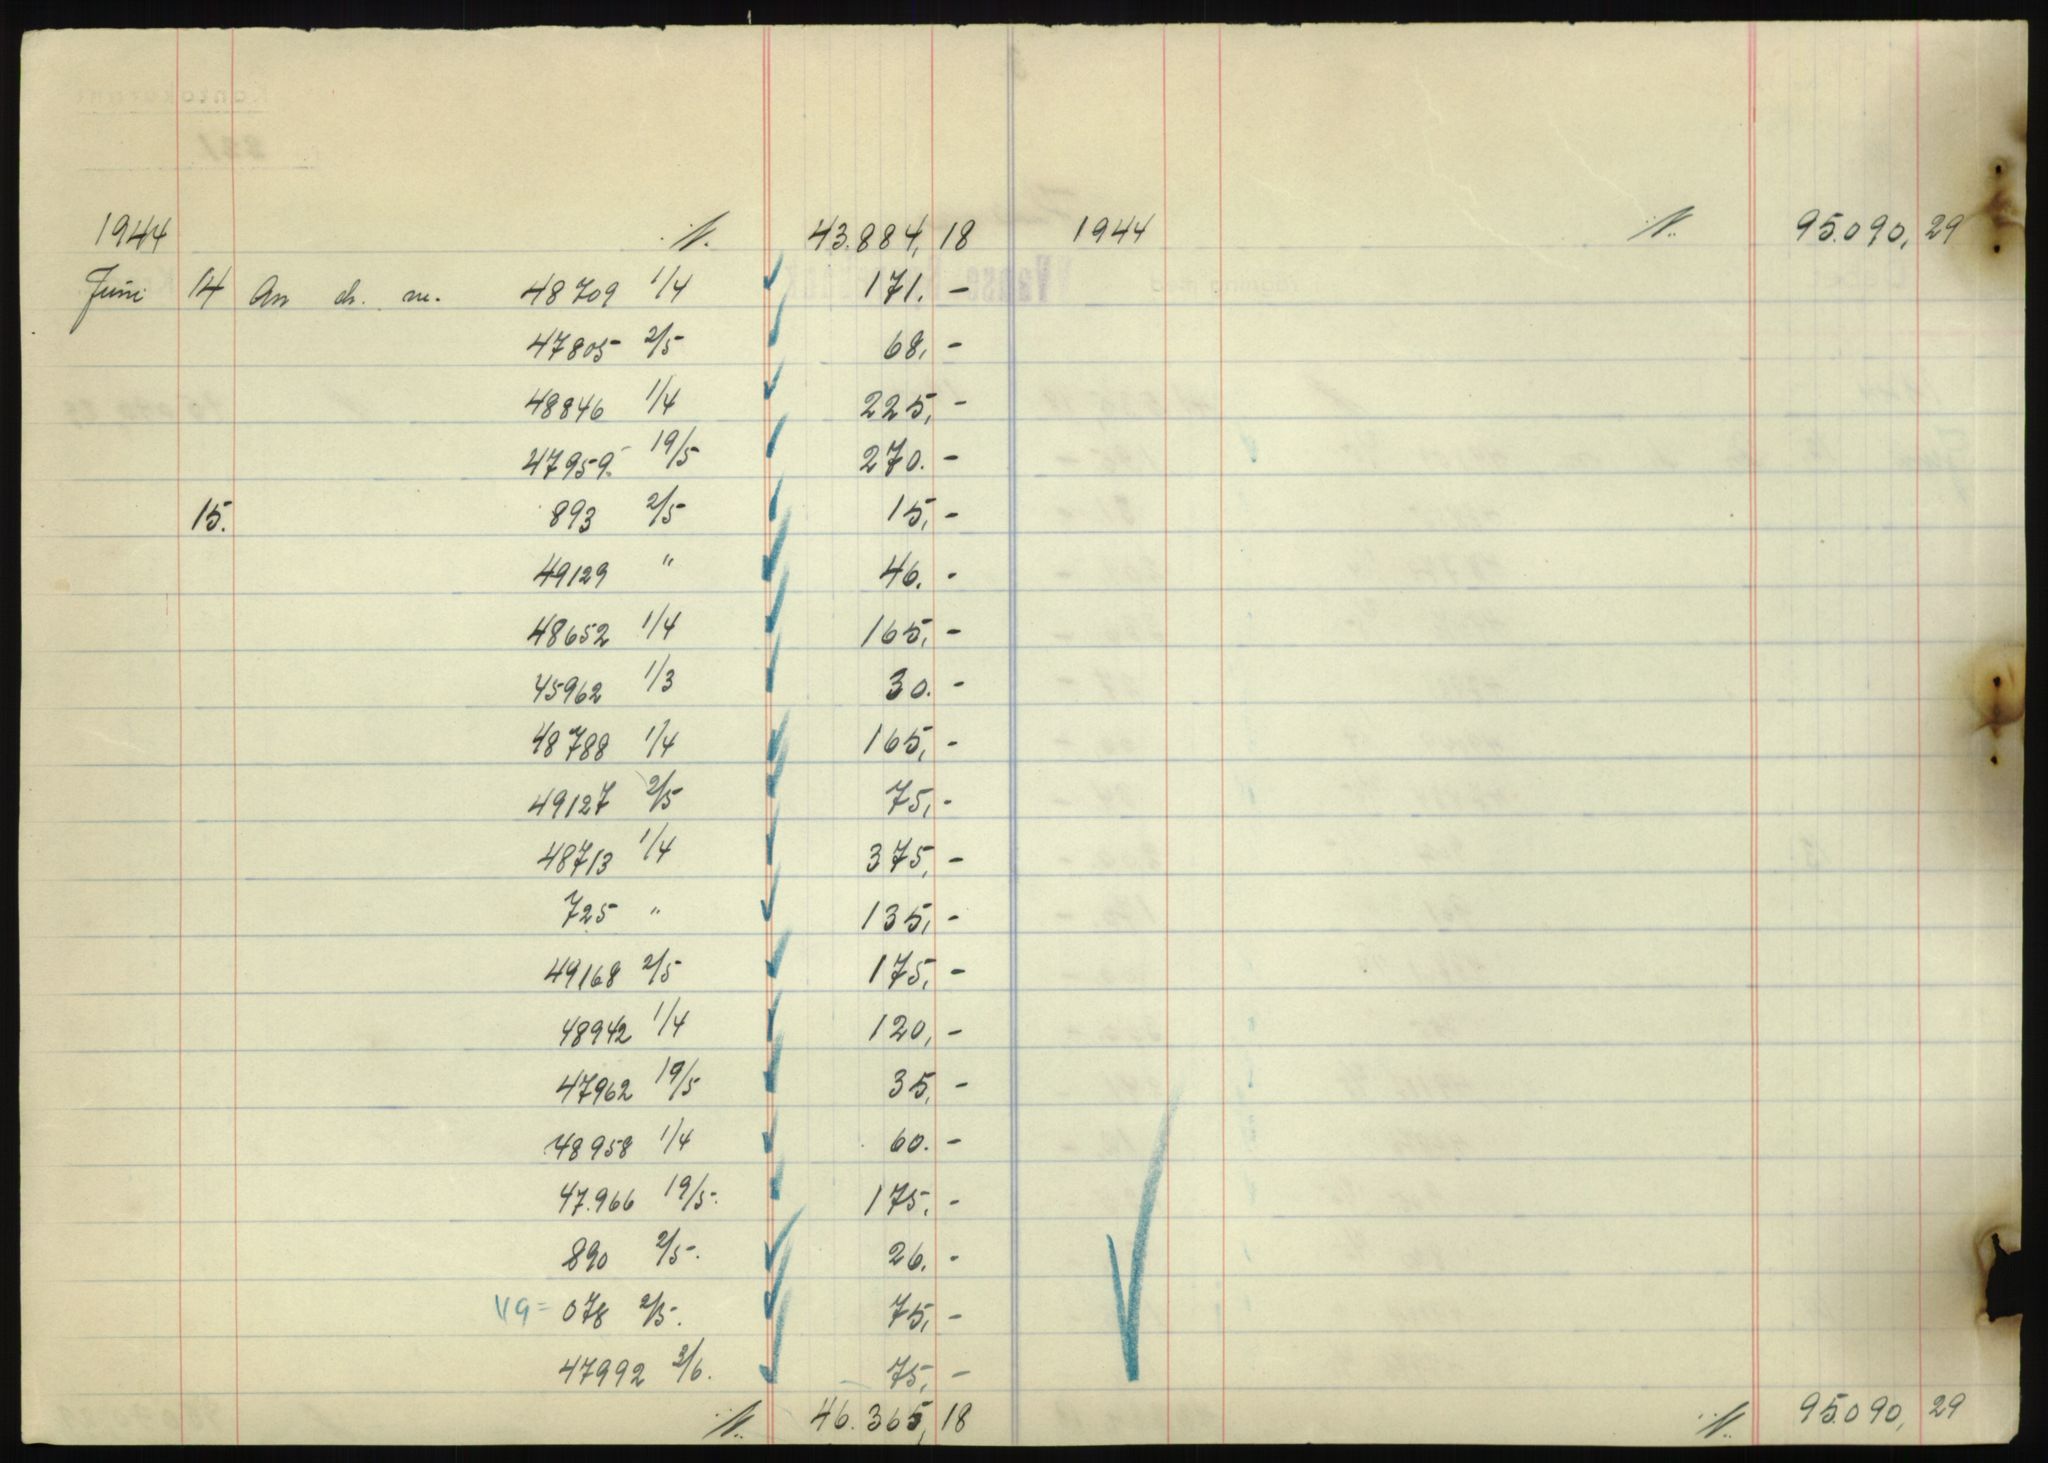 1944 ./. 43.884,18 1944 ./. 95.090,29
Juni 14 An ch. nr. 48709 1/4 171.-
47805 2/5 68,-
48846 1/4 225,-
47959 19/5 270.-
15. 893 2/5 15,-
49129 " 46.-
48652 1/4 165,-
45962 1/3 30.-
48788 1/4 165,-
49127 2/5 75,-
48713 1/4 375,-
725 " 135,-
49168 2/5 175,-
48942 1/4 120,-
47962 19/5 35,-
48958 1/4 60.-
47.966 19/5. 175,-
890 2/5. 26.-
49= 078 2/5. 75,-
47992 3/6. 75,-
./. 46.365,18 ./. 95090,29